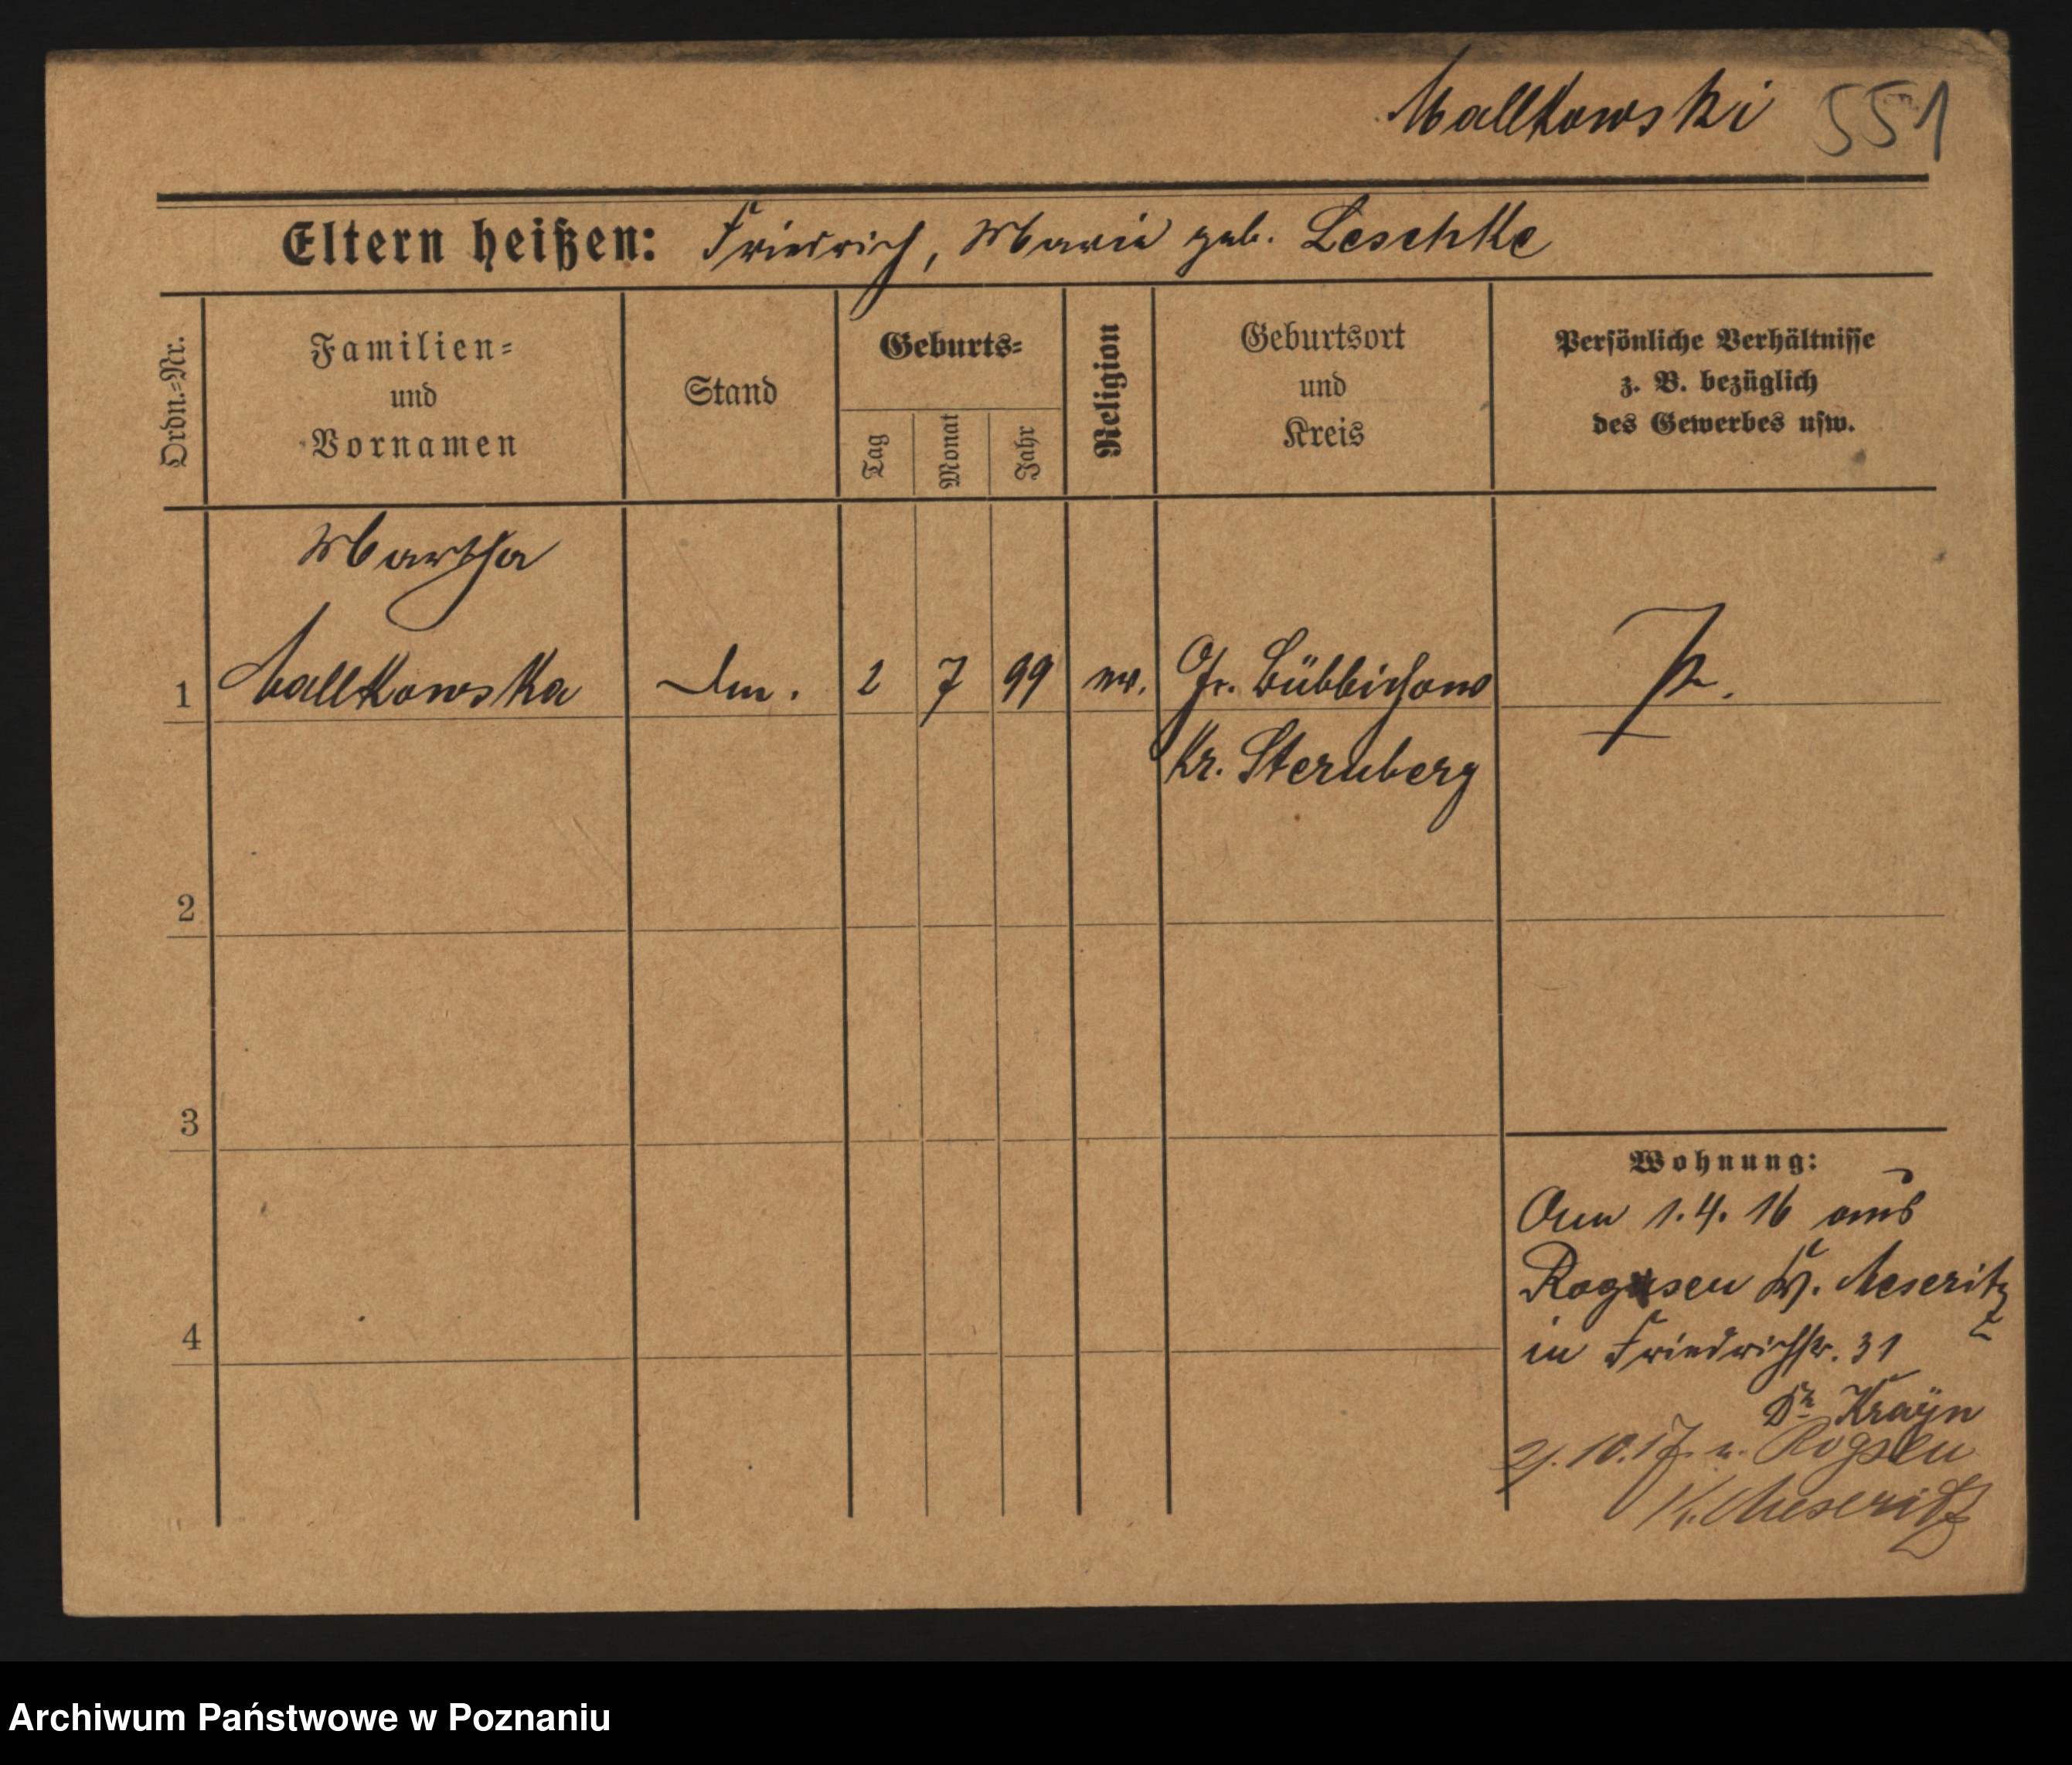 Mallkowski 551
Eltern heißen: Friedrich, Marie geb. Leschke
Ordn.-Nr.
Familien-
und
Vornamen
Stand
Geburts-
Tag
Monat
Jahr
Religion
Geburtsort
und
Kreis
Persönliche Verhältnisse
z. B. bezüglich
des Gewerbes usw.
Martha
1 Mallkowska 2 7 99 ev. Gr. Lübbichow
Kr. Sternberg
2
3
4
Wohnung:
1.4.16 aus
Rogsen Kr. Meseritz
in Friedrichstr. 31
Dr. Krayn
2/.10.17. n. Rogsen
Kr. Meseritz
Archiwum Państwowe w Poznaniu